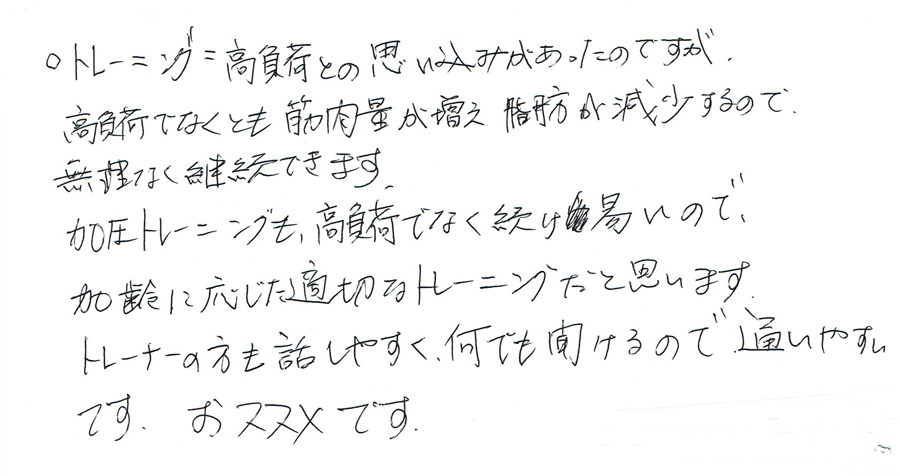 ○トレーニング=高負荷との思い込みがあったのですが、
高負荷でなくとも筋肉量が増え脂肪が減少するので、
無理なく継続できます。
加圧トレーニングも、高負荷でなく続け易いので、
加齢に応じた適切なトレーニングだと思います。
トレーナーの方も話しやすく、何でも聞けるので、通いやすい
です。おススメです。